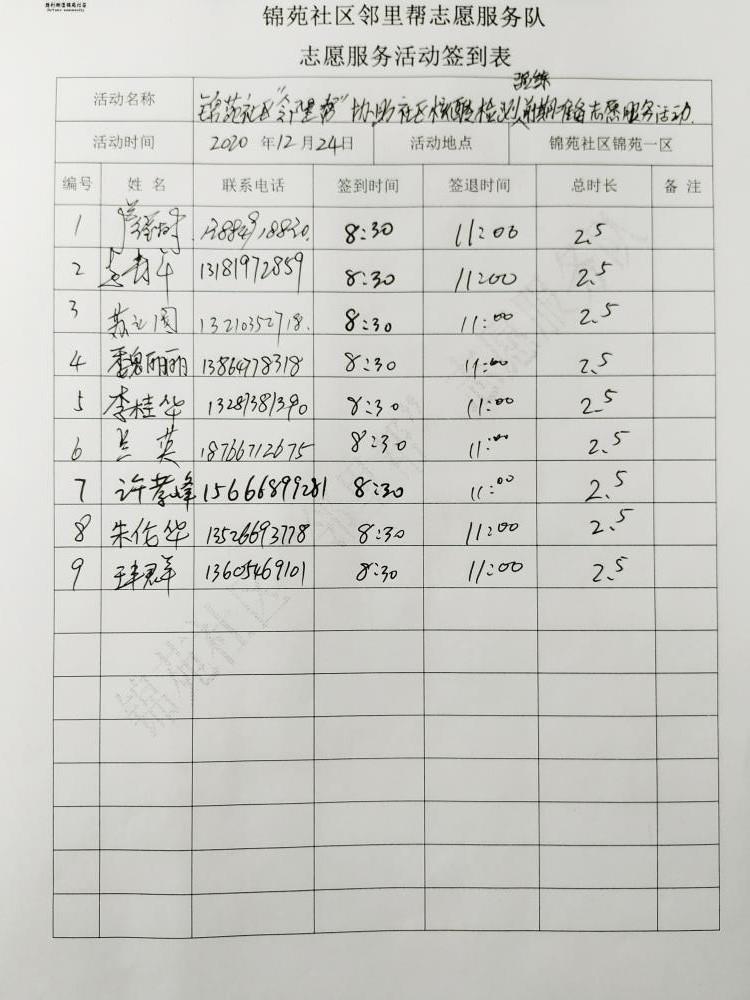 锦苑社区邻里帮志愿服务队
志愿服务活动签到表
活动名称 锦苑社区“邻里帮”协助社区核酸检测演练前期准备志愿服务活动.
活动时间 2020年12月24日 活动地点 锦苑社区锦苑一区
编号 姓名 联系电话 签到时间 签退时间 总时长 备注
1 13884918830. 8:30 11:00 2.5
2 13181972859 8:30 11:00 2.5
3 苏之国 13210352718. 8:30 11:00 2.5
4 魏丽丽 13864778318 8:30 11:00 2.5
5 李桂华 13281381390 8:30 11:00 2.5
6 兰英 18766712675 8:30 11:00 2.5
7 许孝峰 15666899281 8:30 11:00 2.5
8 朱伦华 13526693778 8:30 11:00 2.5
9 13605469101 8:30 11:00 2.5
锦苑社区邻里帮志愿服务队